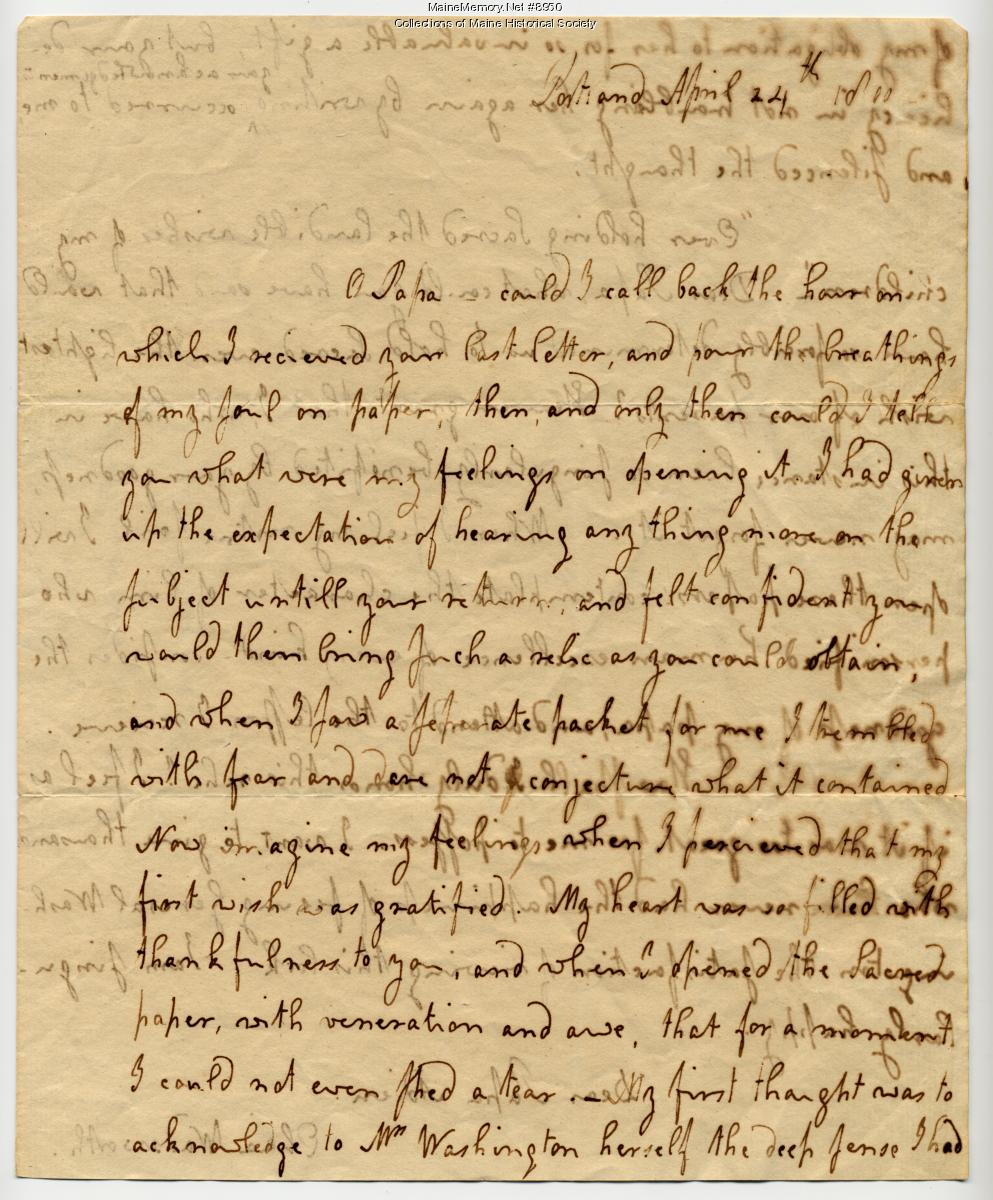 MaineMemory.Net #8950
Collections of Maine Historical Society
Portland April 24th 1800
O Papa could I call back the hour on
which I recieved your last letter, and pour the breathings
of my soul on paper, then, and only then could I tell
you what were my feelings on opening it. I had given
up the expectation of hearing any thing more on the
subject untill your return, and felt confident you
would then bring such a relic as you could obtain,
and when I saw a seperate packet for me I trembled
with fear and dare not conjecture what it contained.
Now imagine my feelings when I percieved that my
first wish was gratified. My heart was filled with
thankfulness to you, and when I opened the sacred
paper, with veneration and awe, that for a moment
I could not even shed a tear. — My first thought was to
acknowledge to Mrs Washington herself the deep sense I had